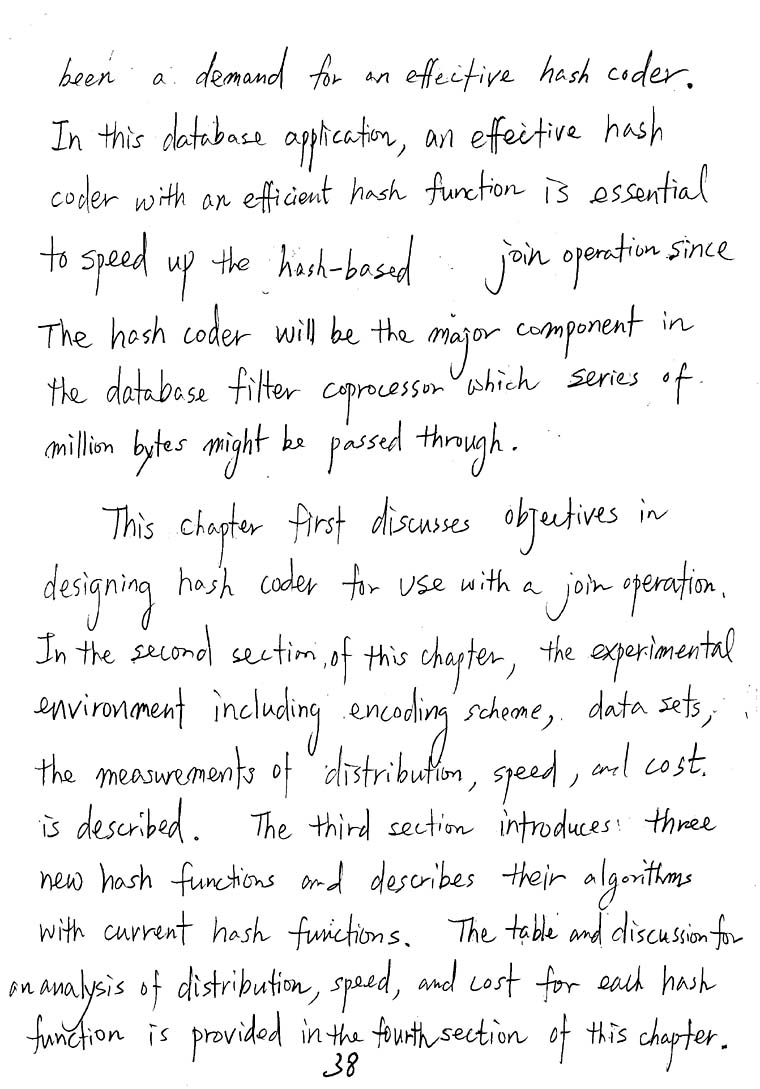 been a demand for an effective hash coder.
In this database application, an effective hash
coder with an efficient hash function is essential
to speed up the hash-based join operation since
The hash coder will be the major component in
the database filter coprocessor which series of
million bytes might be passed through.
This chapter first discusses objectives in
designing hash coder for use with a join operation.
In the second section, of this chapter, the experimental
environment including encoding scheme, data sets,
the measurements of distribution, speed, and cost.
is described. The third section introduces three
new hash functions and describes their algorithms
with current hash functions. The table and discussion for
an analysis of distribution, speed, and cost for each hash
function is provided in the fourth section of this chapter.
38